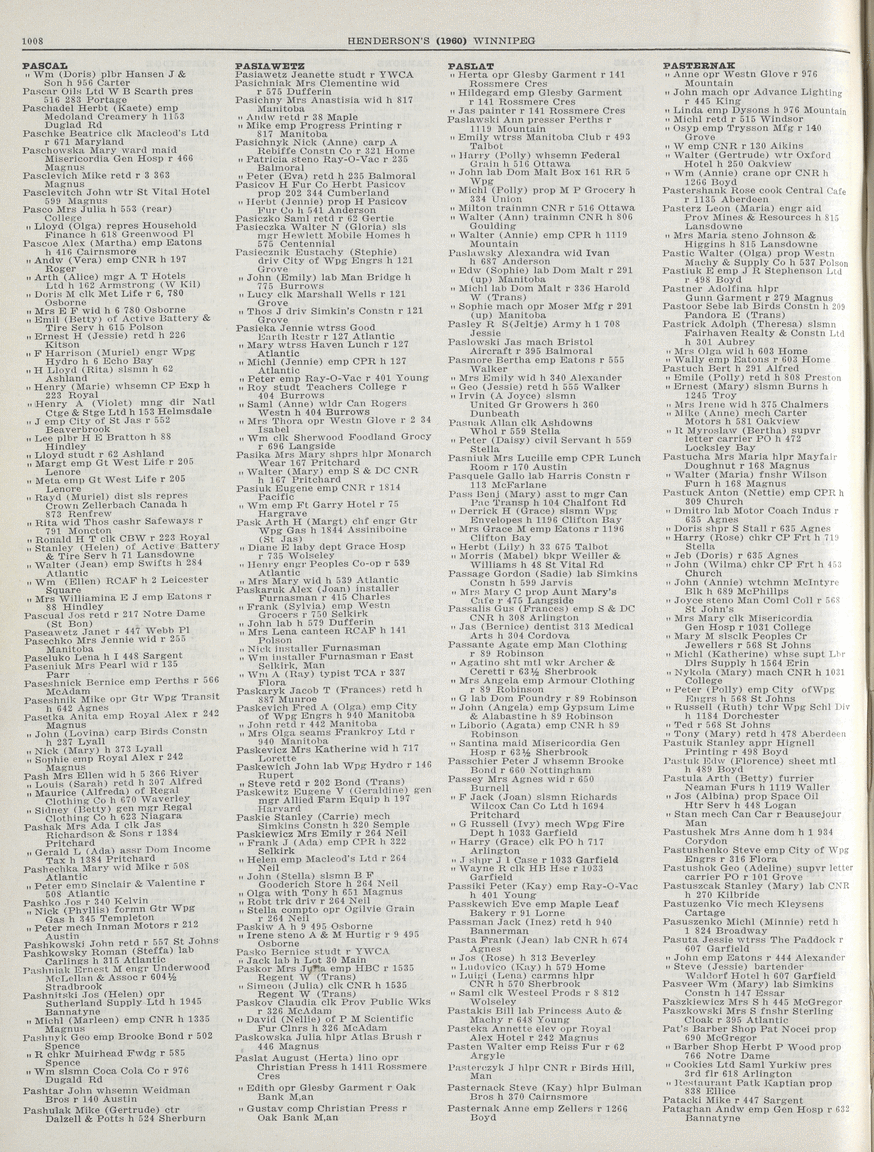 1008
HENDERSON'S (1960) WINNIPEG
PASCAL
" Wm (Doris) plbr Hansen J &
Son h 956 Carter
Pascar Oils Ltd W B Scarth pres
516 283 Portage
Paschadel Herbt (Kaete) emp
Medoland Creamery h 1153
Dugald Rd
Paschke Beatrice clk Macleod's Ltd
r 671 Maryland
Paschowska Mary ward maid
Misericordia Gen Hosp r 466
Magnus
Pasclevich Mike retd r 3 363
Magnus
Pasclevitch John wtr St Vital Hotel
599 Magnus
Pasco Mrs Julia h 553 (rear)
College
" Lloyd (Olga) repres Household
Finance h 618 Greenwood Pl
Pascoe Alex (Martha) emp Eatons
h 416 Cairnsmore
" Andw (Vera) emp CNR h 197
Roger
" Arth (Alice) mgr A T Hotels
Ltd h 162 Armstrong (W Kil)
" Doris M clk Met Life r 6, 780
Osborne
" Mrs E F wid h 6 780 Osborne
" Emil (Betty) of Active Battery &
Tire Serv h 615 Polson
" Ernest H (Jessie) retd h 226
Kitson
" F Harrison (Muriel) engr Wpg
Hydro h 6 Echo Bay
" H Lloyd (Rita) slsmn h 62
Ashland
" Henry (Marie) whsemn CP Exp h
223 Royal
" Henry A (Violet) mng dir Natl
Ctge & Stge Ltd h 153 Helmsdale
" J emp City of St Jas r 552
Beaverbrook
" Lee plbr H E Bratton h 88
Hindley
" Lloyd studt r 62 Ashland
" Margt emp Gt West Life r 205
Lenore
" Meta emp Gt West Life r 205
Lenore
" Rayd (Muriel) dist sls repres
Crown Zellerbach Canada h
873 Renfrew
" Rita wid Thos cashr Safeways r
791 Moncton
" Ronald H T clk CBW r 223 Royal
" Stanley (Helen) of Active Battery
& Tire Serv h 71 Lansdowne
" Walter (Jean) emp Swifts h 284
Atlantic
" Wm (Ellen) RCAF h 2 Leicester
Square
" Mrs Williamina E J emp Eatons r
88 Hindley
Pascual Jos retd r 217 Notre Dame
(St Bon)
Paseawetz Janet r 447 Webb Pl
Pasechko Mrs Jennie wid r 255
Manitoba
Paseluko Lena h I 448 Sargent
Paseniuk Mrs Pearl wid r 135
Parr
Paseshnick Bernice emp Perths r 566
McAdam
Paseshnik Mike opr Gtr Wpg Transit
h 642 Agnes
Pasetka Anita emp Royal Alex r 242
Magnus
" John (Lovina) carp Birds Constn
h 237 Lyall
" Nick (Mary) h 373 Lyall
" Sophie emp Royal Alex r 242
Magnus
Pash Mrs Ellen wid h 5 366 River
" Louis (Sarah) retd h 307 Alfred
" Maurice (Alfreda) of Regal
Clothing Co h 670 Waverley
" Sidney (Betty) gen mgr Regal
Clothing Co h 623 Niagara
Pashak Mrs Ada I clk Jas
Richardson & Sons r 1384
Pritchard
" Gerald L (Ada) assr Dom Income
Tax h 1384 Pritchard
Pashechka Mary wid Mike r 508
Atlantic
" Peter emp Sinclair & Valentine r
508 Atlantic
Pashko Jos r 340 Kelvin
" Nick (Phyllis) formn Gtr Wpg
Gas h 345 Templeton
" Peter mech Inman Motors r 212
Austin
Pashkowski John retd r 557 St Johns
Pashkowsky Roman (Steffa) lab
Carlings h 315 Atlantic
Pashniak Ernest M engr Underwood
McLellan & Assoc r 604½
Stradbrook
Pashnitski Jos (Helen) opr
Sutherland Supply Ltd h 1945
Bannatyne
" Michl (Marleen) emp CNR h 1335
Magnus
Pashnyk Geo emp Brooke Bond r 502
Spence
" R chkr Muirhead Fwdg r 585
Spence
" Wm slsmn Coca Cola Co r 976
Dugald Rd
Pashtar John whsemn Weidman
Bros r 140 Austin
Pashulak Mike (Gertrude) ctr
Dalzell & Potts h 524 Sherburn
PASIAWETZ
Pasiawetz Jeanette studt r YWCA
Pasichniak Mrs Clementine wid
r 575 Dufferin
Pasichny Mrs Anastisia wid h 817
Manitoba
" Andw retd r 38 Maple
" Mike emp Progress Printing r
817 Manitoba
Pasichnyk Nick (Anne) carp A
Rebiffe Constn Co r 321 Home
" Patricia steno Ray-O-Vac r 235
Balmoral
" Peter (Eva) retd h 235 Balmoral
Pasicov H Fur Co Herbt Pasicov
prop 202 344 Cumberland
" Herbt (Jennie) prop H Pasicov
Fur Co h 541 Anderson
Pasiczko Saml retd r 62 Gertie
Pasieczka Walter N (Gloria) sls
mgr Hewlett Mobile Homes h
575 Centennial
Pasiecznik Eustachy (Stephie)
driv City of Wpg Engrs h 121
Grove
" John (Emily) lab Man Bridge h
775 Burrows
" Lucy clk Marshall Wells r 121
Grove
" Thos J driv Simkin's Constn r 121
Grove
Pasieka Jennie wtrss Good
Earth Restr r 127 Atlantic
" Mary wtrss Haven Lunch r 127
Atlantic
" Michl (Jennie) emp CPR h 127
Atlantic
" Peter emp Ray-O-Vac r 401 Young
" Roy studt Teachers College r
404 Burrows
" Saml (Anne) wldr Can Rogers
Westn h 404 Burrows
" Mrs Thora opr Westn Glove r 2 34
Isabel
" Wm clk Sherwood Foodland Grocy
r 696 Langside
Pasika Mrs Mary shprs hlpr Monarch
Wear 167 Pritchard
" Walter (Mary) emp S & DC CNR
h 167 Pritchard
Pasiuk Eugene emp CNR r 1814
Pacific
" Wm emp Ft Garry Hotel r 75
Hargrave
Pask Arth H (Margt) chf engr Gtr
Wpg Gas h 1844 Assiniboine
(St Jas)
" Diane E laby dept Grace Hosp
r 735 Wolseley
" Henry engr Peoples Co-op r 539
Atlantic
" Mrs Mary wid h 539 Atlantic
Paskaruk Alex (Joan) installer
Furnasman r 415 Charles
" Frank (Sylvia) emp Westn
Grocers r 750 Selkirk
" John lab h 579 Dufferin
" Mrs Lena canteen RCAF h 141
Polson
" Nick installer Furnasman
" Wm installer Furnasman r East
Selkirk, Man
" Wm A (Ray) typist TCA r 337
Flora
Paskaryk Jacob T (Frances) retd h
887 Munroe
Paskevich Fred A (Olga) emp City
of Wpg Engrs h 940 Manitoba
" John retd r 442 Manitoba
" Mrs Olga seams Frankroy Ltd r
940 Manitoba
Paskevicz Mrs Katherine wid h 717
Lorette
Paskewich John lab Wpg Hydro r 146
Rupert
" Steve retd r 202 Bond (Trans)
Paskewitz Eugene V (Geraldine) gen
mgr Allied Farm Equip h 197
Harvard
Paskie Stanley (Carrie) mech
Simkins Constn h 320 Semple
Paskiewicz Mrs Emily r 264 Neil
" Frank J (Ada) emp CPR h 322
Selkirk
" Helen emp Macleod's Ltd r 264
Neil
" John (Stella) slsmn B F
Gooderich Store h 264 Neil
" Olga with Tony h 651 Magnus
" Robt trk driv r 264 Neil
" Stella compto opr Ogilvie Grain
r 264 Neil
Paskiw A h 9 495 Osborne
" Irene steno A & M Hurtig r 9 495
Osborne
Pasko Bernice studt r YWCA
" Jack lab h Lot 30 Main
Paskor Mrs emp HBC r 1535
Regent W (Trans)
" Simeon (Julia) clk CNR h 1535
Regent W (Trans)
Paskov Claudia clk Prov Public Wks
r 326 McAdam
" David (Nellie) of P M Scientific
Fur Clnrs h 326 McAdam
Paskowska Julia hlpr Atlas Brush r
446 Magnus
Paslat August (Herta) lino opr
Christian Press h 1411 Rossmere
Cres
" Edith opr Glesby Garment r Oak
Bank M,an
" Gustav comp Christian Press r
Oak Bank M,an
PASLAT
" Herta opr Glesby Garment r 141
Rossmere Cres
" Hildegard emp Glesby Garment
r 141 Rossmere Cres
" Jas painter r 141 Rossmere Cres
Paslawski Ann presser Perths r
1119 Mountain
" Emily wtrss Manitoba Club r 493
Talbot
" Harry (Polly) whsemn Federal
Grain h 516 Ottawa
" John lab Dom Malt Box 161 RR 5
Wpg
" Michl (Polly) prop M P Grocery h
334 Union
" Milton trainmn CNR r 516 Ottawa
" Walter (Ann) trainmn CNR h 806
Goulding
" Walter (Annie) emp CPR h 1119
Mountain
Paslawsky Alexandra wid Ivan
h 687 Anderson
" Edw (Sophie) lab Dom Malt r 291
(up) Manitoba
" Michl lab Dom Malt r 336 Harold
W (Trans)
" Sophie mach opr Moser Mfg r 291
(up) Manitoba
Pasley R S(Jeltje) Army h 1 708
Jessie
Paslowski Jas mach Bristol
Aircraft r 395 Balmoral
Pasmore Bertha emp Eatons r 555
Walker
" Mrs Emily wid h 340 Alexander
" Geo (Jessie) retd h 555 Walker
" Irvin (A Joyce) slsmn
United Gr Growers h 360
Dunbeath
Pasnak Allan clk Ashdowns
Whol r 559 Stella
" Peter (Daisy) civil Servant h 559
Stella
Pasniuk Mrs Lucille emp CPR Lunch
Room r 170 Austin
Pasquele Gallo lab Harris Constn r
113 McFarlane
Pass Benj (Mary) asst to mgr Can
Pac Transp h 104 Chalfont Rd
" Derrick H (Grace) slsmn Wpg
Envelopes h 1196 Clifton Bay
" Mrs Grace M emp Eatons r 1196
Clifton Bay
" Herbt (Lily) h 33 675 Talbot
" Morris (Mabel) bkpr Weiller &
Williams h 48 St Vital Rd
Passage Gordon (Sadie) lab Simkins
Constn h 599 Jarvis
" Mrs Mary C prop Aunt Mary's
Cafe r 475 Langside
Passalis Gus (Frances) emp S & DC
CNR h 308 Arlington
" Jas (Bernice) dentist 313 Medical
Arts h 304 Cordova
Passante Agate emp Man Clothing
r 89 Robinson
" Agatino sht mtl wkr Archer &
Ceretti r 63½ Sherbrook
" Mrs Angela emp Armour Clothing
r 89 Robinson
" G lab Dom Foundry r 89 Robinson
" John (Angela) emp Gypsum Lime
& Alabastine h 89 Robinson
" Liborio (Agata) emp CNR h 89
Robinson
" Santina maid Misericordia Gen
Hosp r 63½ Sherbrook
Passchier Peter J whsemn Brooke
Bond r 660 Nottingham
Passey Mrs Agnes wid r 650
Burnell
" F Jack (Joan) slsmn Richards
Wilcox Can Co Ltd h 1694
Pritchard
" G Russell (Ivy) mech Wpg Fire
Dept h 1033 Garfield
" Harry (Grace) clk PO h 717
Arlington
" J shpr J I Case r 1033 Garfield
" Wayne R clk HB Hse r 1033
Garfield
Passiki Peter (Kay) emp Ray-O-Vac
h 401 Young
Passkewich Eve emp Maple Leaf
Bakery r 91 Lorne
Passman Jack (Inez) retd h 940
Bannerman
Pasta Frank (Jean) lab CNR h 674
Agnes
" Jos (Rose) h 313 Beverley
" Ludovico (Kay) h 579 Home
" Luigi (Lena) carmns hlpr
CNR h 570 Sherbrook
" Saml clk Westeel Prods r 8 812
Wolseley
Pastakis Bill lab Princess Auto &
Machy r 648 Young
Pasteka Annette elev opr Royal
Alex Hotel r 242 Magnus
Pasten Walter emp Reiss Fur r 62
Argyle
Pasterczyk J hlpr CNR r Birds Hill,
Man
Pasternack Steve (Kay) hlpr Bulman
Bros h 370 Cairnsmore
Pasternak Anne emp Zellers r 1266
Boyd
PASTERNAK
" Anne opr Westn Glove r 976
Mountain
" John mach opr Advance Lighting
r 445 King
" Linda emp Dysons h 976 Mountain
" Michl retd r 515 Windsor
" Osyp emp Trysson Mfg r 140
Grove
" W emp CNR r 130 Aikins
" Walter (Gertrude) wtr Oxford
Hotel h 250 Oakview
" Wm (Annie) crane opr CNR h
1266 Boyd
Pastershank Rose cook Central Cafe
r 1135 Aberdeen
Pasterz Leon (Maria) engr aid
Prov Mines & Resources h 815
Lansdowne
" Mrs Maria steno Johnson &
Higgins h 815 Lansdowne
Pastic Walter (Olga) prop Westn
Machy & Supply Co h 537 Polson
Pastiuk E emp J R Stephenson Ltd
r 498 Boyd
Pastner Adolfina hlpr
Gunn Garment r 279 Magnus
Pastoor Sebe lab Birds Constn h 209
Pandora E (Trans)
Pastrick Adolph (Theresa) slsmn
Fairhaven Realty & Constn Ltd
h 301 Aubrey
" Mrs Olga wid h 603 Home
" Wally emp Eatons r 603 Home
Pastuch Bert h 291 Alfred
" Emile (Polly) retd h 808 Preston
" Ernest (Mary) slsmn Burns h
1245 Troy
" Mrs Irene wid h 375 Chalmers
" Mike (Anne) mech Carter
Motors h 581 Oakview
" R Myroslaw (Bertha) supvr
letter carrier PO h 472
Locksley Bay
Pastucha Mrs Maria hlpr Mayfair
Doughnut r 168 Magnus
" Walter (Maria) fnshr Wilson
Furn h 168 Magnus
Pastuck Anton (Nettie) emp CPR h
309 Church
" Dmitro lab Motor Coach Indus r
635 Agnes
" Doris shpr S Stall r 635 Agnes
" Harry (Rose) chkr CP Frt h 719
Stella
" Jeb (Doris) r 635 Agnes
" John (Wilma) chkr CP Frt h 453
Church
" John (Annie) wtchmn McIntyre
Blk h 689 McPhillips
" Joyce steno Man Coml Coll r 568
St John's
" Mrs Mary clk Misericordia
Gen Hosp r 1031 College
" Mary M slsclk Peoples Cr
Jewellers r 568 St Johns
" Michl (Katherine) whse supt Lbr
Dlrs Supply h 1564 Erin
" Nykola (Mary) mach CNR h 1031
College
" Peter (Polly) emp City ofWpg
Engrs h 568 St Johns
" Russell (Ruth) tchr Wpg Schl Div
h 1184 Dorchester
" Ted r 568 St Johns
" Tony (Mary) retd h 478 Aberdeen
Pastuik Stanley appr Hignell
Printing r 498 Boyd
Pastuk Edw (Florence) sheet mtl
h 489 Boyd
Pastula Arth (Betty) furrier
Neaman Furs h 1119 Waller
" Jos (Albina) prop Space Oil
Htr Serv h 448 Logan
" Stan mech Can Car r Beausejour
Man
Pastushek Mrs Anne dom h 1 934
Corydon
Pastushenko Steve emp City of Wpg
Engrs r 316 Flora
Pastushok Geo (Adeline) supvr letter
carrier PO r 101 Grove
Pastuszcak Stanley (Mary) lab CNR
h 270 Kilbride
Pastuzenko Vic mech Kleysens
Cartage
Pasuszenko Michl (Minnie) retd h
1 824 Broadway
Pasuta Jessie wtrss The Paddock r
607 Garfield
" John emp Eatons r 444 Alexander
" Steve (Jessie) bartender
Waldorf Hotel h 607 Garfield
Pasveer Wm (Mary) lab Simkins
Constn h 147 Essar
Paszkiewicz Mrs S h 445 McGregor
Paszkowski Mrs S fnshr Sterling
Cloak r 395 Atlantic
Pat's Barber Shop Pat Nocei prop
690 McGregor
" Barber Shop Herbt P Wood prop
766 Notre Dame
" Cookies Ltd Saml Yurkiw pres
3rd flr 618 Arlington
" Restaurant Patk Kaptian prop
838 Ellice
Patacki Mike r 447 Sargent
Pataghan Andw emp Gen Hosp r 632
Bannatyne